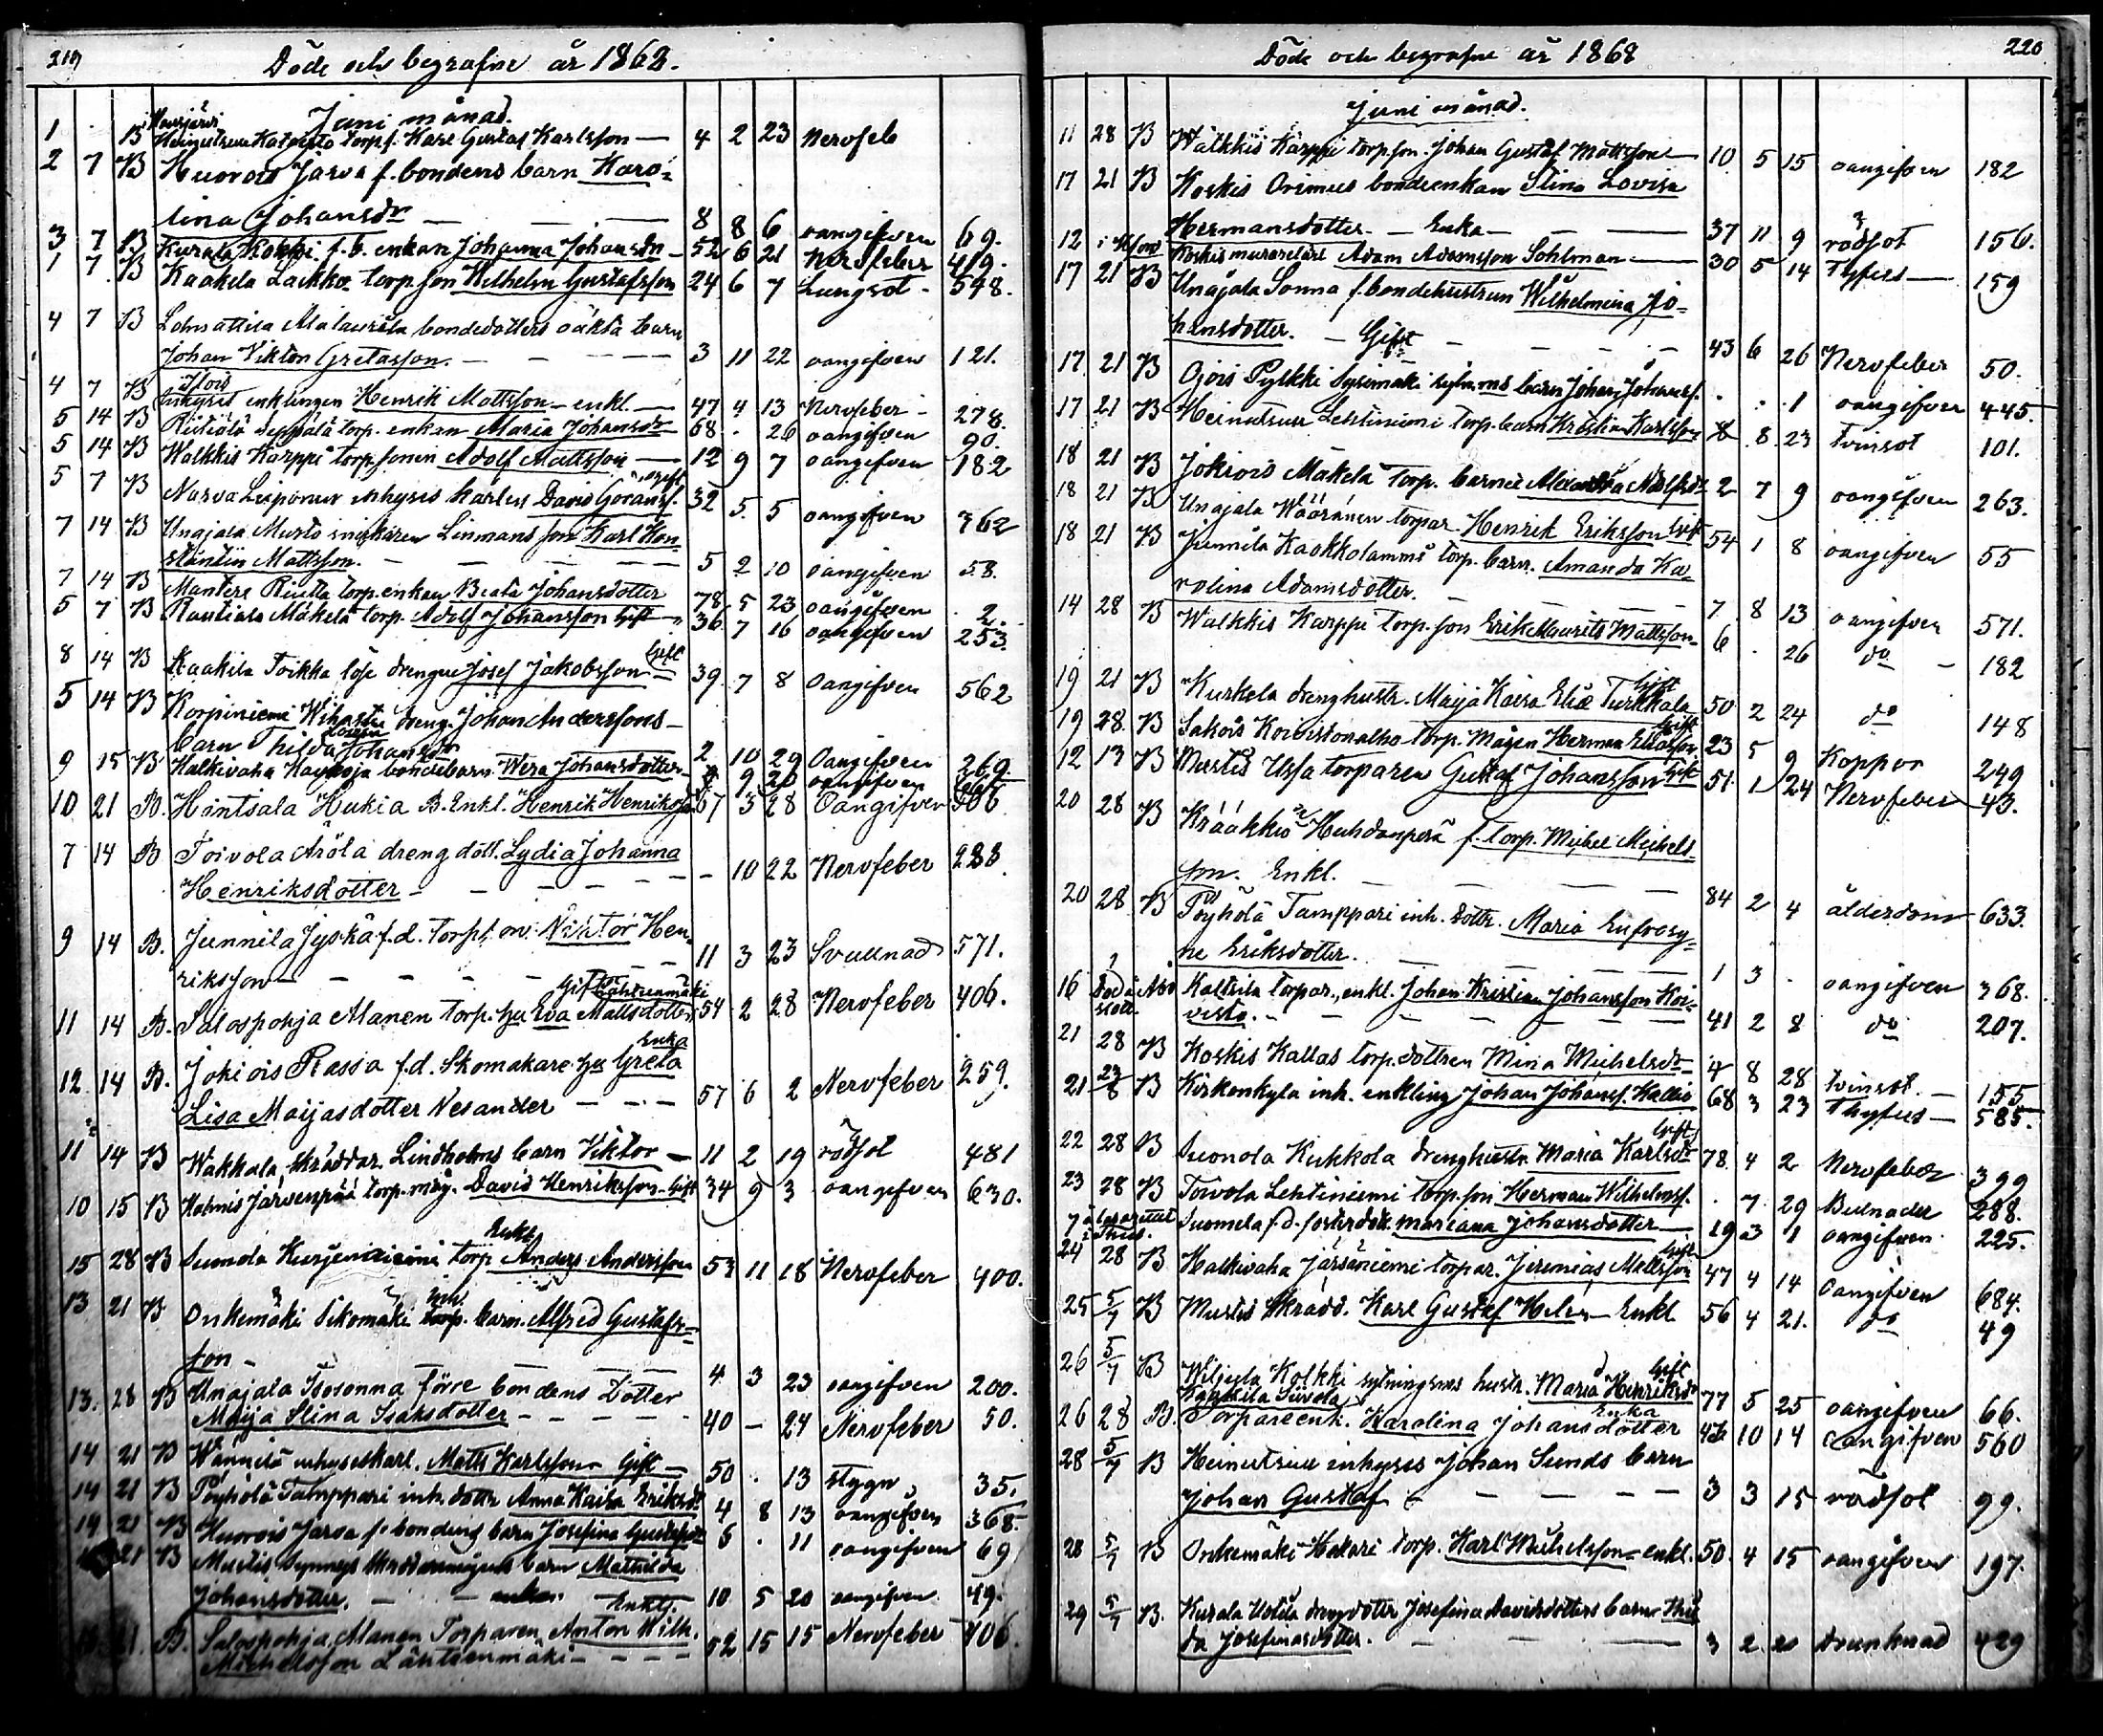 219
Döde och begrafne år 1868.
Juni månad.
1 B Heinutream Kataisto torp f. Karl Gustaf Karlsson — 4 2 23 Nervfeb
2 7 B Huovois Jarva f. bondens barn Karo-
lina Johansdr — — 8 8 6 oangifven 69.
3 7 B Kurala Kokki f. b. enkan Johanna Johansdr — 52 6 21 Nervfeber 419.
1 7 B Kaakela Laikko torp. son Wilhelm Gustafsson 24 6 7 Lungsot - 598.
4 7 B bondedotters oäkta barn
Johan Viktor Gretasson. — — — 3 11 22 oangifven 121.
4 7 B inhyses enklingen Henrik Mattsson - enkl. — 47 4 13 Nervfeber - 278.
5 14 B Seppälä torp. enkan Maria Johansdr 68 . 26 oangifven 90.
5 14 B Walkkis Karppi torp sonen Adolf Mattsson — 12 9 7 oangifven 182
5 7 B Narva inhyses karlen David Göransf. gift 32 5 5 oangifven 362
7 14 B Unajala Musto snickaren Linmans son Karl Kon-
stantin Mattsson. — — — 5 2 10 oangifven 58.
7 14 B Mantere Riutta torp. enkan Beata Johansdotter 78 5 23 oangifven 2.
5 7 B Rautiala Mäkelä torp. Adolf Johansson Gift 36 7 16 oangifven 253.
8 14 B Kaakila Toikka löse drengen Josef Jakobsson Gift 39 7 8 oangifven 562
5 14 B Korpiniemi dreng. Johan Anderssons
barn Hilda Lovisa Johansdr 2 10 29 Oangifven 269
9 15 B Halkivaha bondebarn Wera Johansdotter 9 20 oangifven
10 21 B. Hintsala Hukia B. Enkl. Henrik Henriksson 67 5 28 Oangifven 306
7 14 B Toivola Aröla dreng dott. Lydia Johanna
Henriksdotter — — — - 10 22 Nervfeber 288.
9 14 B. Junnila Jyskä f.d. torp. Viktor Hen-
riksson — — — 11 3 23 Svullnad 571.
Gift Lähteenmäki
11 14 B. Salospohja Alanen torp. hu Eva Mattsdotter 54 2 28 Nervfeber 406.
Enka
12. 14 B. Jokiois Rassa f.d. Skomakare hu Greta
Lisa Maijasdotter Nesander — — 57 6 2 Nervfeber 259.
11 14 B Wakkala skräddar Lindholms barn Viktor — 11 2 19 rödsot 481
10 15 B Kolmis Järvenpää torp. måg. David Henriksson Gift 34 9 3 oangifven 630.
Enkl.
15 28 B Suonola Kurjenniemi torp Anders Andersson 53 11 18 Nervfeber 400.
inh.
13 21 B Onkemäki Sikomäki torp. barn. Alfred Gustafs-
son — — — 4 3 23 oangifven 200.
13. 28 B Unajala Isosonna förre bondens Dotter
Maija Stina Isaksdotter — — 40 — 24 Nervfeber 50.
14 21 B Wännilä inhyseskarl. Matts Karlsson Gift — 50 . 13 Stygn 35.
14 21 B Pöyhölä Tamppari inh. dottr Anna Kaisa Eriksdr 4 8 13 oangifven 368.
14 21 B Huovois Jarva f. bonding barn Josefina Gustafsdr 6 . 11 oangifven 69
21 B Mustis barn Mathilda
Johansdotter. — — 10 5 20 oangifven 49.
Enkl.
B. Salospohja Alanen Torparen Anton Wilh.
Michelsson Lähteenmäki — — 52 15 15 Nervfeber 406.
220
Döde och begrafne år 1868
Juni månad.
11 28 B Walkkis Karppi torp. son. Johan Gustaf Mattsson — 10 5 15 oangifven 182
17 21 B Koskis Orimus bondeenkan Stina Lovisa
Hermansdotter. — Enka — — 37 11 9 rödsot 156.
12 Koskis Adam Adamsson Sohlman — 30 5 14 Tyfus — 159
17 21 B Unajala Sonna f. bondehustrun Wilhelmina Jo-
hansdotter. — Gift — — 43 6 26 Nervfeber 50.
17 21 B Ojois Pylkki barn Johan Johansf. . . 1 oangifven 445.
17 21 B Heinutream Lehtiniemi torp. barn Kristian Karlsson 8 23 tvinsot 101.
18 21 B Jokiois Mäkelä torp. barnet Alexandra Adolfsdr 2 7 9 oangifven 263.
18 21 B Unajala Wääränen torpar. Henrik Eriksson Gift 54 1 8 oangifven 55
18 21 B Junnila Kaakkolammi torp. barn. Amanda Ka-
rolina Adamsdotter. — — 7 8 13 oangifven 571.
14 28 B Walkkis Karppi torp. son Erik Maurits Mattsson 6 . 26 do — 182
19 21 B Kurkela drenghustr. Maija Kaisa Eliæ Turkkala Gift 50 2 24 do 148
19 28. B Sakois Koivistonalho torp. mågen Herman Eliasson Gift 23 5 9 Koppor 249
12 13 B Mustis Ussa torparen Gustaf Johansson Gift 51. 1 24 Nervfeber 43.
20 28 B Krääkkiö Huhdanperä f. torp. Michel Michels-
son. Enkl. — — 84 2 4 ålderdom 633.
20 28. B Pöyhölä Tamppari inh. dottr. Maria Eufrosy-
ne Eriksdotter. — — 1 3 . oangifven 368.
16 Död i Åbo slott. Kaltsila torpar., enkl. Johan Kristian Johansson Koi-
visto. — — 41 2 8 do 207.
21 28 B Koskis Kallas torp. dottren Mina Michelsdr — 4 8 28 tvinsot. — 155
21 B Kirkonkylä inh. enkling Johan Johansf. Kallio 68 3 23 Thyfus — 585.
22 28 B Suonola Kukkola drenghustr Maria Karlsdr Gift 78. 4 2 Nervfeber 399
23 28 B Toivola Lehtiniemi torp. son Herman Wilhelmsf. . 7 29 Bulnader 288.
7 Suomela f.d. fosterdott. Mariana Johansdotter — 19 3 1 oangifven 225.
24 28 B Halkivaha Järsäniemi torpar. Jeremias Mattsson Gift 47 4 14 oangifven 684.
25 5/7 B Mustis Skrädd. Karl Gustaf Helin — Enkl 56 4 21. do 49
26 5/7 B Kolkki sytningsms hustr. Maria Henriksdr Gift 77 5 25 oangifven 66.
Kaakila Siivola
26 28 B. Torpare enk. Karolina Johansdotter Enka 10 14 oangifven 560
28 5/7 B Heinutream inhyses Johan Sunds barn
Johan Gustaf — — — 3 3 15 rödsot 99.
28 5/7 B Onkemäki Hakari torp. Karl Michelsson — enkl. 50 4 15 oangifven 197.
29 5/7 B. Kurala Uotila drengdottr Josefina Davidsdotters barn Hil-
da Josefinasdotter. — — 3 2 20 drunknad 429